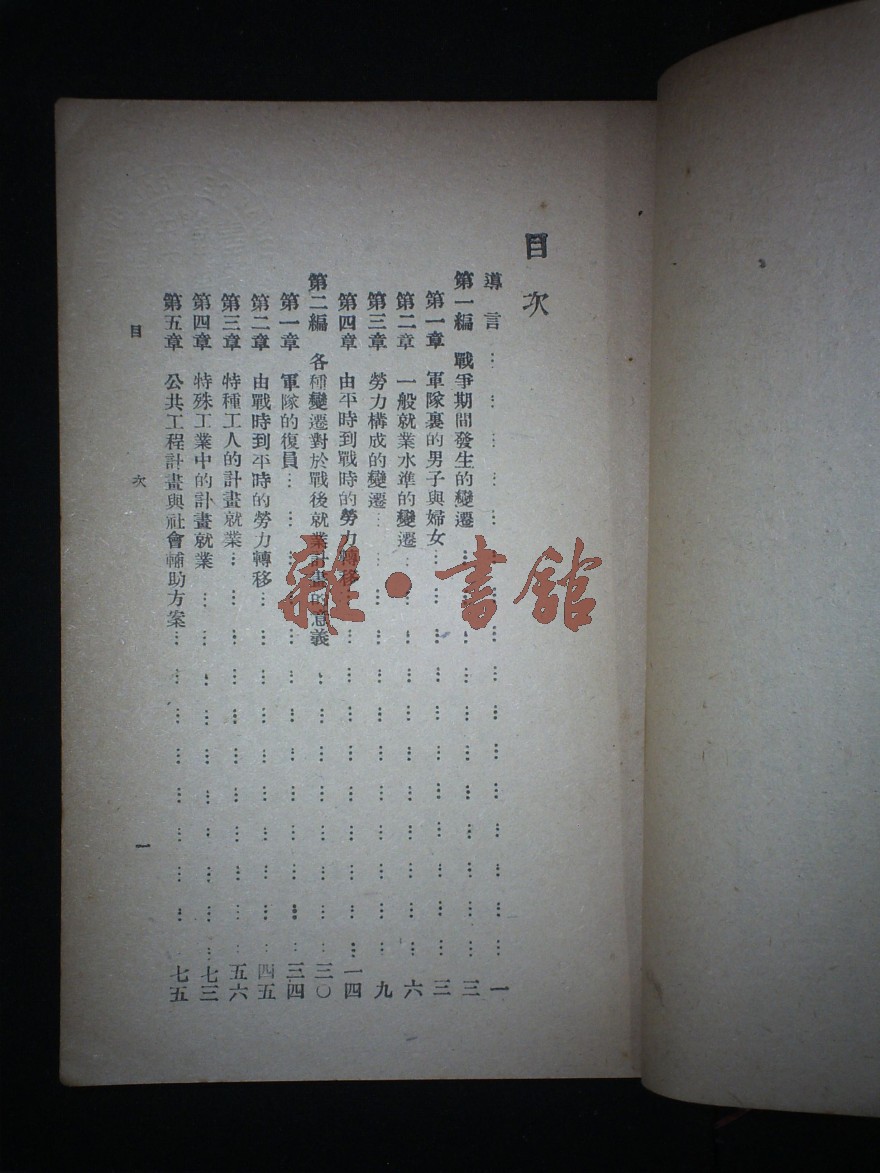 目次
導言 … … … … … … … … … 一
第一編 戰爭期間發生的變遷 … … … … … … … 三
第一章 軍隊裏的男子與婦女 … … … … … … 三
第二章 一般就業水準的變遷 … … … … … … 六
第三章 勞力構成的變遷 … … … … … … … 九
第四章 由平時到戰時的勞力轉移 … … … … … … 一四
第二編 各種變遷對於戰後就業計畫的意義 … … … … … 三〇
第一章 軍隊的復員 … … … … … … … … 三四
第二章 由戰時到平時的勞力轉移 … … … … … … 四五
第三章 特種工人的計畫就業 … … … … … … … 五六
第四章 特殊工業中的計畫就業 … … … … … … 七三
第五章 公共工程計畫與社會輔助方案 … … … … … 七五
目次 一
雜·書館